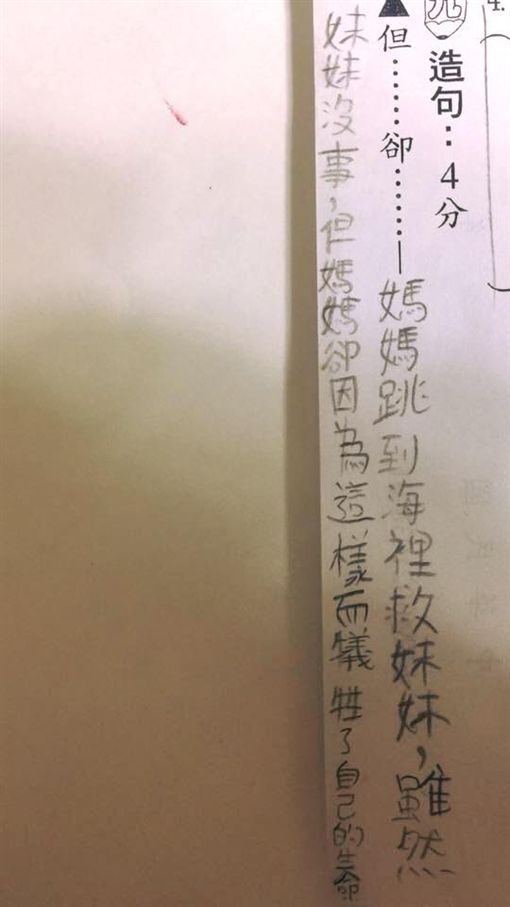 4.(
九、造句：4分
▲但⋯⋯卻⋯⋯—媽媽跳到海裡救妹妹，雖然
妹妹沒事，但媽媽卻因為這樣而犧牲了自己的生命